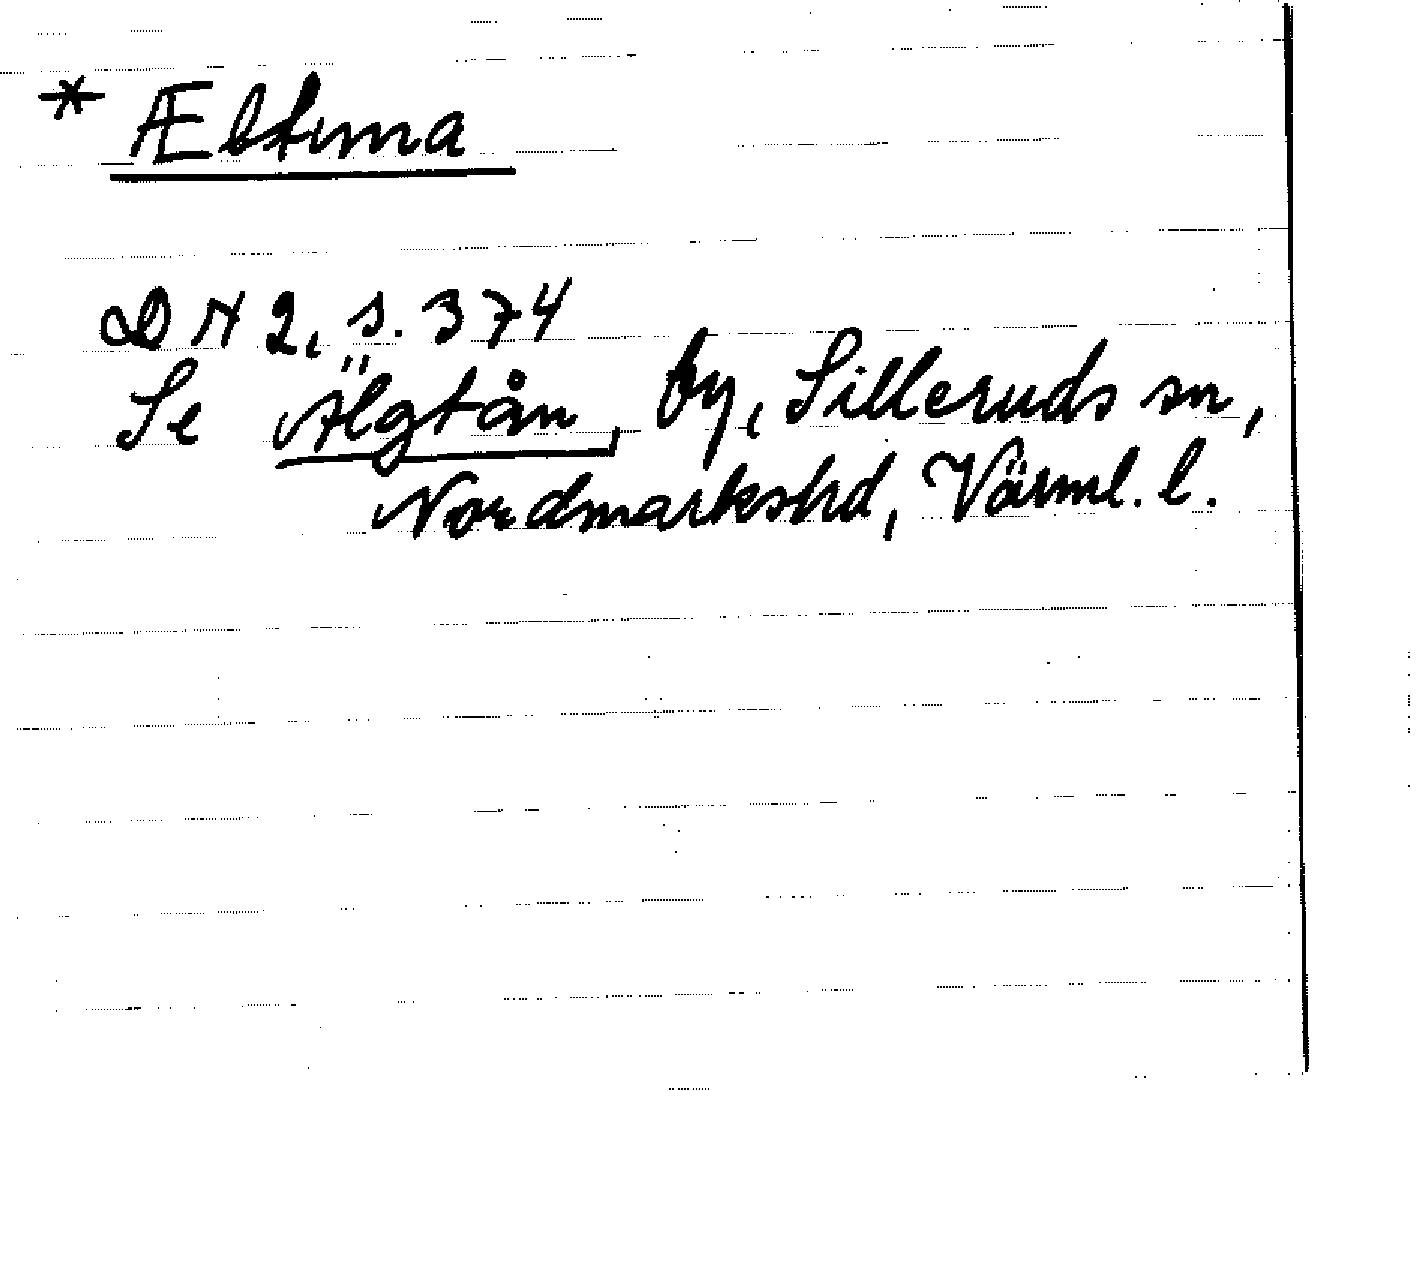 * Æltuna
DN 2, s. 374
Se Älgtån, by, Silleruds sn,
Nordmarkshd, Värml. l.